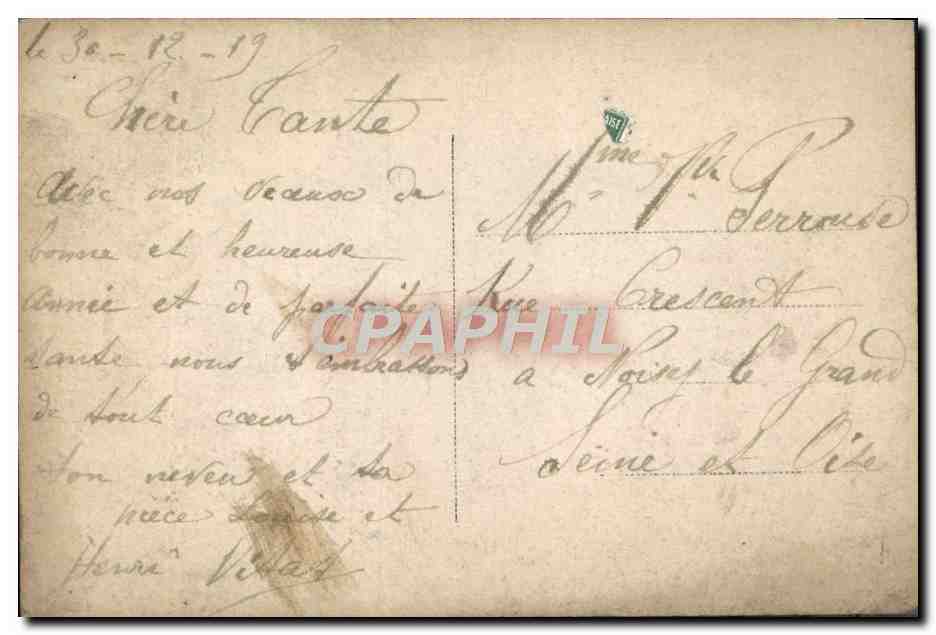 le 30 - 12 - 19
Chère Tante
avec nos veaux de
bonne et heureuse
année et de parfaite
santé, nous t'embrassons
de tout cœur
ton neveu et ta
nièce Louise et
Henri
AISE
Mme Perrouse
Rue Crescent
a Noisy le Grand
Seine et Oise
CPAPHIL